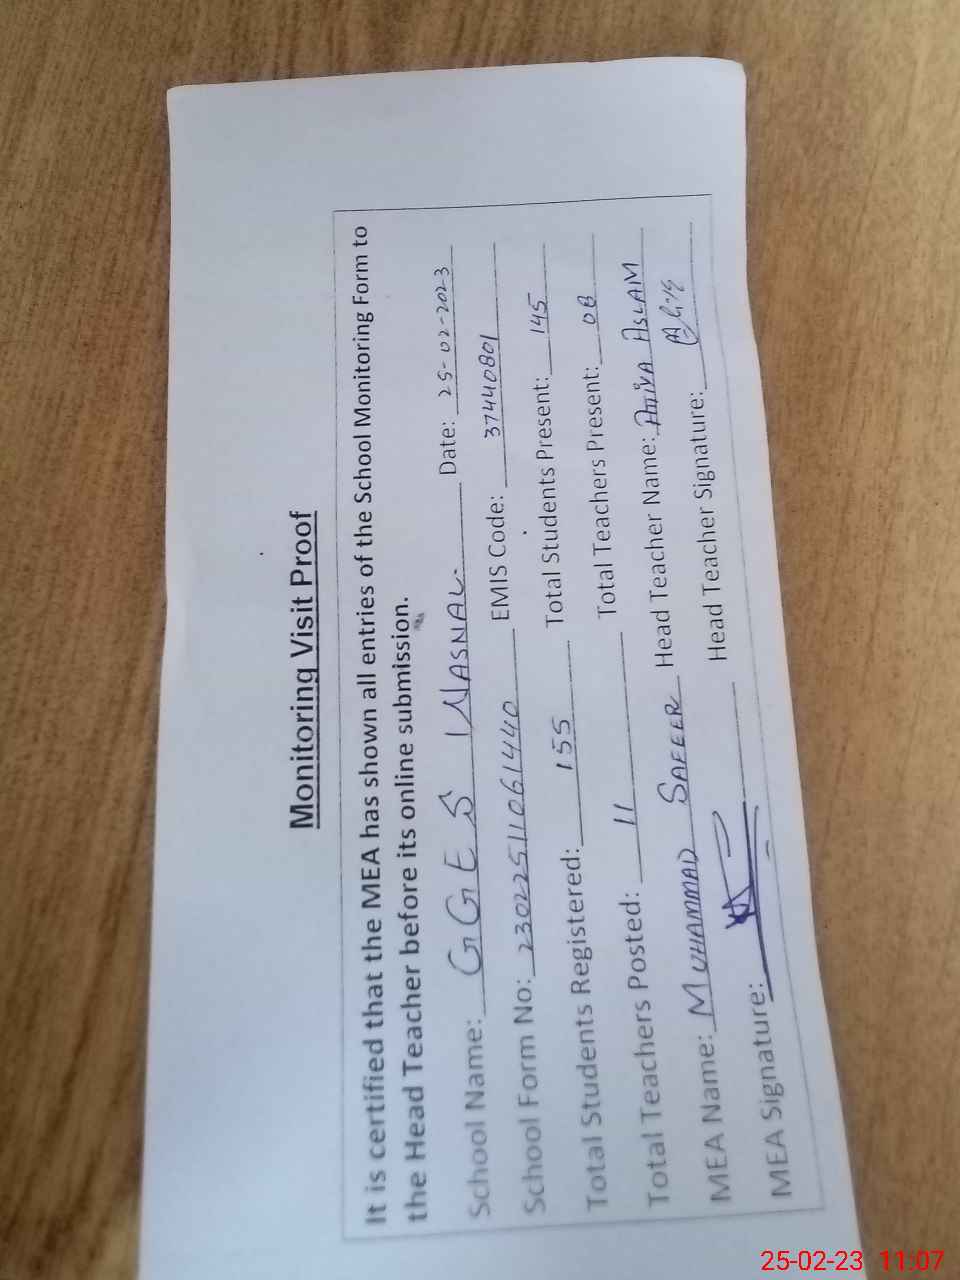 Monitoring Visit Proof
It is certified that the MEA has shown all entries of the School Monitoring Form to
the Head Teacher before its online submission.
School Name: GGES WASNAL Date: 25-02-2023
School Form No: 23022511061440 EMIS Code: 37440801
Total Students Registered: 155 Total Students Present: 145
Total Teachers Posted: 11 Total Teachers Present: 08
MEA Name: MUHAMMAD SAFEER Head Teacher Name: ASLAM
MEA Signature: Head Teacher Signature:
25-02-23 11:07